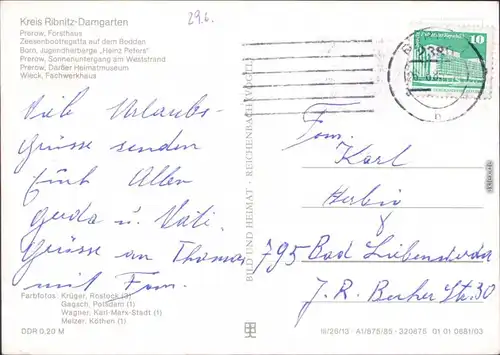 Kreis Ribnitz-Damgarten
29.6.
Prerow, Forsthaus
Zeesenbootregatta auf dem Bodden
Born, Jugendherberge „Heinz Peters"
Prerow, Sonnenuntergang am Weststrand
Prerow, Darßer Heimatmuseum
Wieck, Fachwerkhaus
Viele Urlaubs-
grüsse senden
Euch Allen
Gerda u. Vati.
Grüsse an Thomas
mit Fam.
Farbfotos: Krüger, Rostock (3)
Gagsch, Potsdam (1)
Wagner, Karl-Marx-Stadt (1)
Melzer, Köthen (1)
DDR 0,20 M
BILD UND HEIMAT · REICHENBACH (VOGTL)
10
Fam.
Karl
795 Bad Liebenwerda
J. R. Becher Str. 30
III/26/13 A1/875/85 · 320875 01 01 0881/03